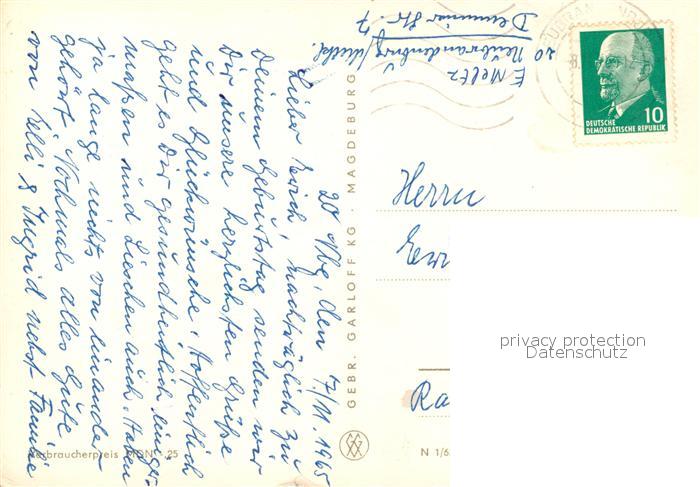 20 Nbg, den 7/11. 1965
Lieber Erich! Nachträglich zu
Deinem Geburtstag senden wir
Dir unsere herzlichsten Grüße
und Glückwünsche. Hoffentlich
geht es Dir gesundheitlich einiger-
maßen und Lieschen auch. Haben
ja lange nichts von einander
gehört. Nochmals alles Gute
von Elli & Ingrid nebst Familie
E Meltz
20 Neubrandenburg/Meckl.
Demminer Str. 7
DEUTSCHE
DEMOKRATISCHE REPUBLIK
10
Herrn
Erw
Ra
GEBR. GARLOFF KG · MAGDEBURG
Verbraucherpreis MDN -,25
N 1/6
privacy protection
Datenschutz